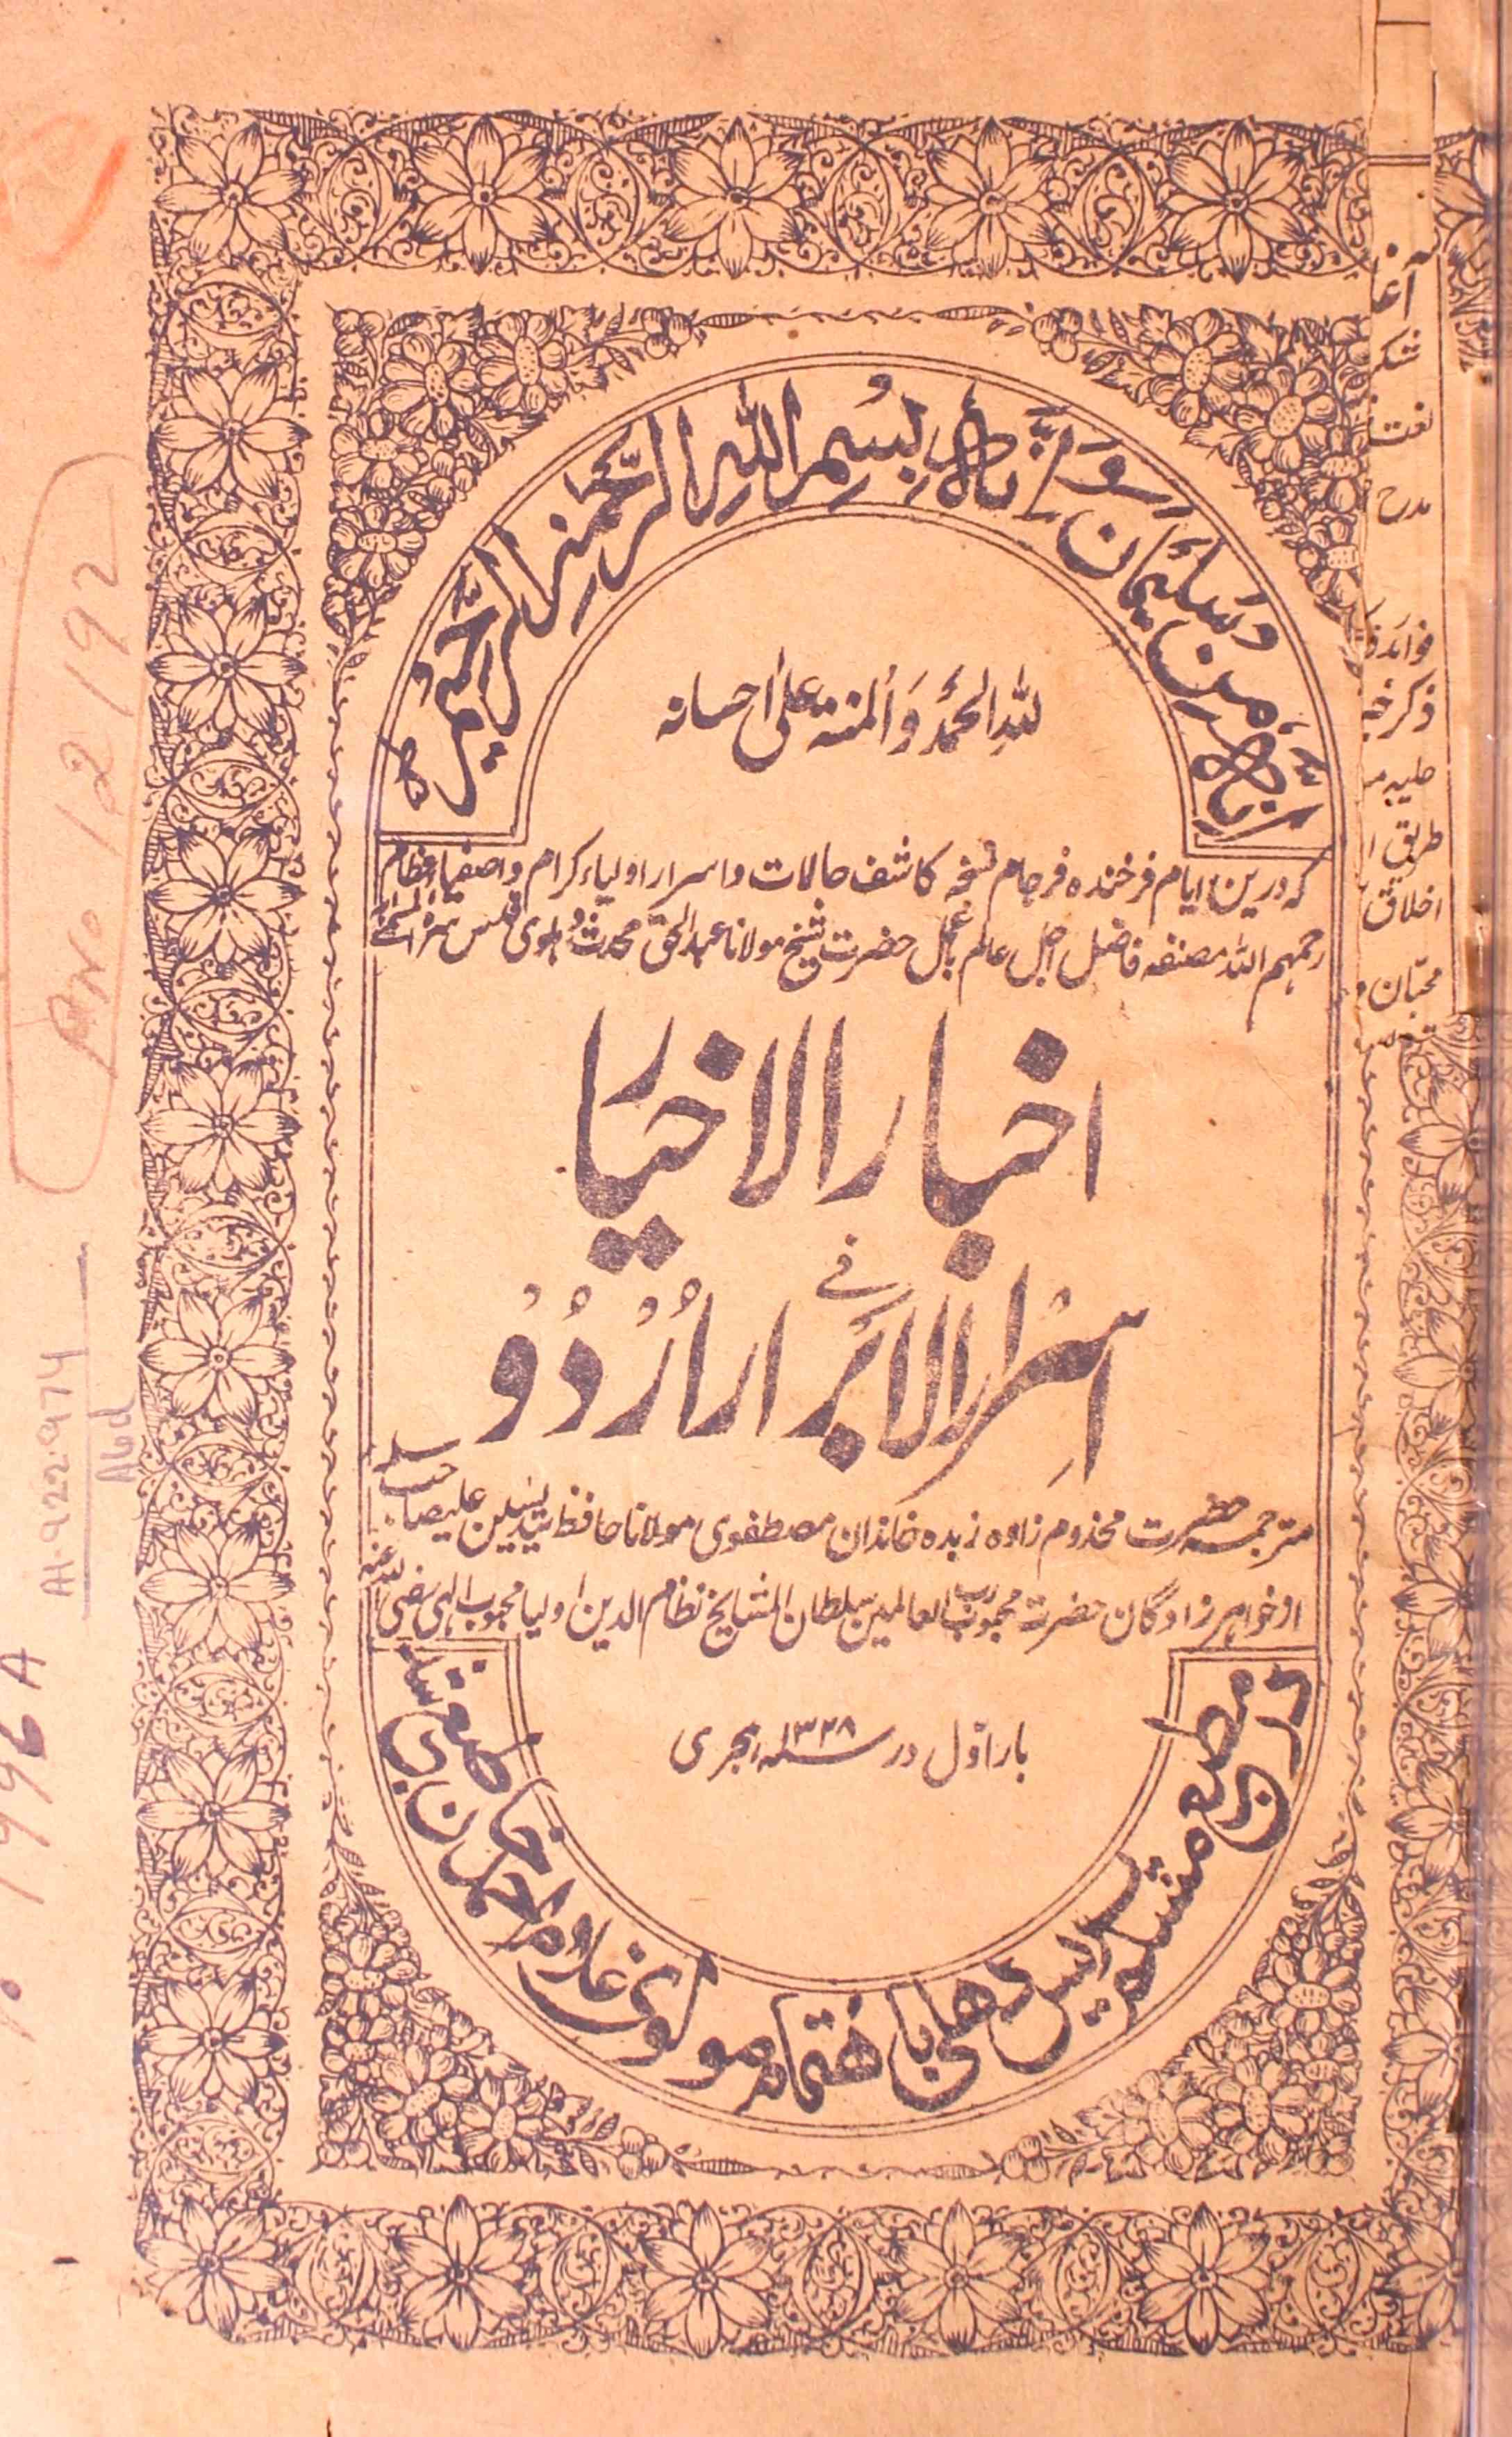 انہ من سلیمان و انہ بسم اللہ الرحمن الرحیم
للہ الحمد و المنۃ علیٰ احسانہ
کہ درین ایام فرخندہ فرجام نسخہ کاشف حالات و اسرار اولیاء کرام و اصفیاء عظام
رحمہم اللہ مصنفہ فاضل اجل عالم باعمل حضرت شیخ مولانا عبد الحق محدث دہلوی قدس سرہ
اخبار الاخیار
فے
اسرار الابرار اردو
مترجمہ حضرت مخدوم زادہ زبدہ خاندان مصطفوی مولانا حافظ سید یٰسین علی صاحب
از خواہر زادگان حضرت محبوب رب العالمین سلطان المشایخ نظام الدین اولیا محبوب الٰہی رضی اللہ عنہ
بار اوّل در ۱۳۲۸ ہجری
در مطبع مسلم پریس دھلی باہتمام مولوی غلام احمد خان
نعت
مدح
اخلاق
محبّان و
RNo 12192
AH-922.974
Abd